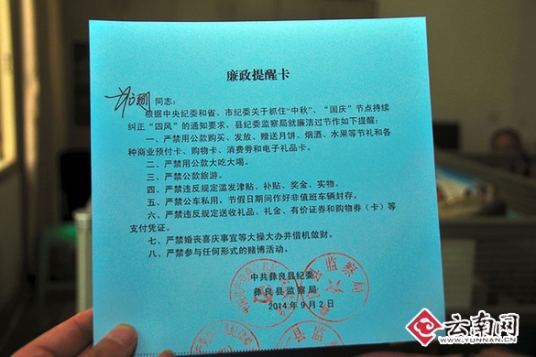 廉政提醒卡
同志：
根据中央纪委和省、市纪委关于抓住“中秋”、“国庆”节点持续
纠正“四风”的通知要求，县纪委监察局就廉洁过节作如下提醒：
一、严禁用公款购买、发放、赠送月饼、烟酒、水果等节礼和各
种商业预付卡、购物卡、消费券和电子礼品卡。
二、严禁用公款大吃大喝。
三、严禁公款旅游。
四、严禁违反规定滥发津贴、补贴、奖金、实物。
五、严禁公车私用，节假日期间作好非值班车辆封存。
六、严禁违反规定送收礼品、礼金、有价证券和购物券（卡）等
支付凭证。
七、严禁婚丧喜庆事宜等大操大办并借机敛财。
八、严禁参与任何形式的赌博活动。
中共彝良县纪委
彝良县监察局
2014年9月2日
云南网
WWW.YUNNAN.CN